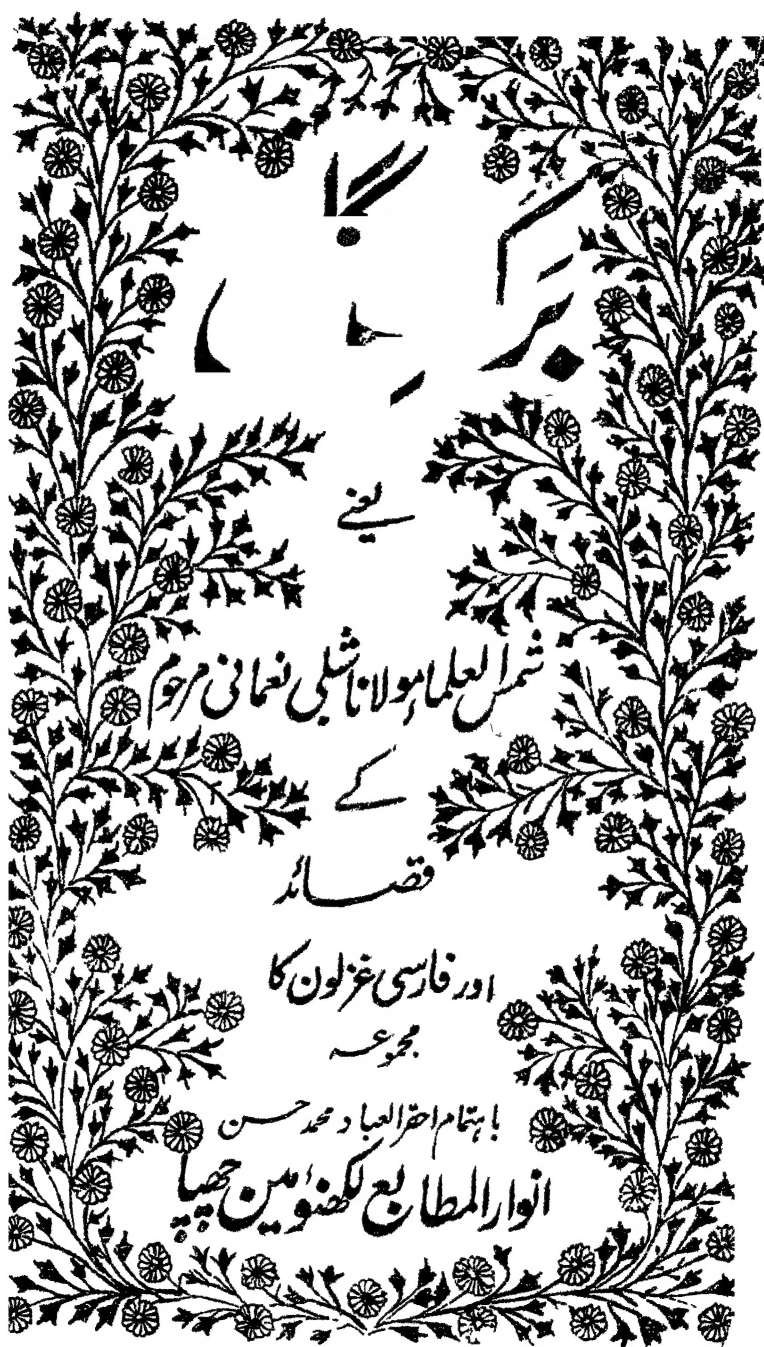 یعنے
شمس العلماء مولانا شبلی نعمانی مرحوم
کے
قصائد
اور فارسی غزلون کا
مجموعہ
باہتمام احقر العباد محمد حسن
انوار المطابع لکھنؤ مین چھپا